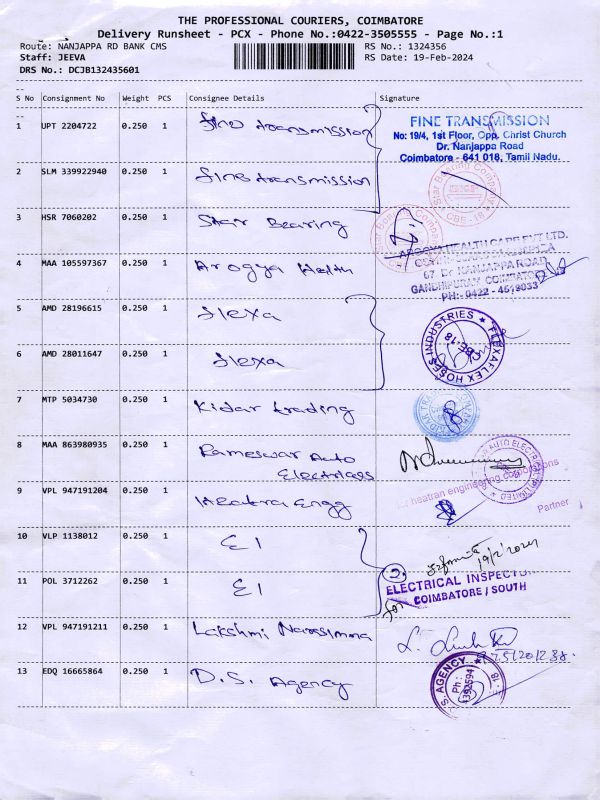 THE PROFESSIONAL COURIERS, COIMBATORE
Delivery Runsheet - PCX - Phone No.:0422-3505555 - Page No.:1
Route: NANJAPPA RD BANK CMS
RS No.: 1324356
Staff: JEEVA
RS Date: 19-Feb-2024
DRS No.: DCJB132435601
S No Consignment No Weight PCS Consignee Details Signature
1 UPT 2204722 0.250 1 fine transmission
FINE TRANSMISSION
No: 19/4, 1st Floor, Opp. Christ Church
Dr. Nanjappa Road
Coimbatore - 641 018, Tamil Nadu.
2 SLM 339922940 0.250 1 fine transmission
Star Bearing Company
CBE-18
3 HSR 7060202 0.250 1 Star Bearing
Star Bearing Company
AROGYA HEALTH CARE PVT LTD.
67 Dr NANJAPPA ROAD
GANDHIPURAM COIMBATORE
PH:- 0422 - 4519033
4 MAA 105597367 0.250 1 Arogya Health
5 AMD 28196615 0.250 1 flexa
FLEXAFLEX HOSES INDUSTRIES
CBE-18
6 AMD 28011647 0.250 1 flexa
7 MTP 5034730 0.250 1 Kidar trading
8 MAA 863980935 0.250 1 Rameswar Auto
Electricals
heatran engineering corporations
Partner
9 VPL 947191204 0.250 1 Heatra Engg
10 VLP 1138012 0.250 1 E I
19/2/2024
11 POL 3712262 0.250 1 E I
2
for
ELECTRICAL INSPECTOR
COIMBATORE / SOUTH
12 VPL 947191211 0.250 1 Lakshmi Narasimma
13 EDQ 16665864 0.250 1 D.S. Agency
D.S. AGENCY
Ph:
4392594
18